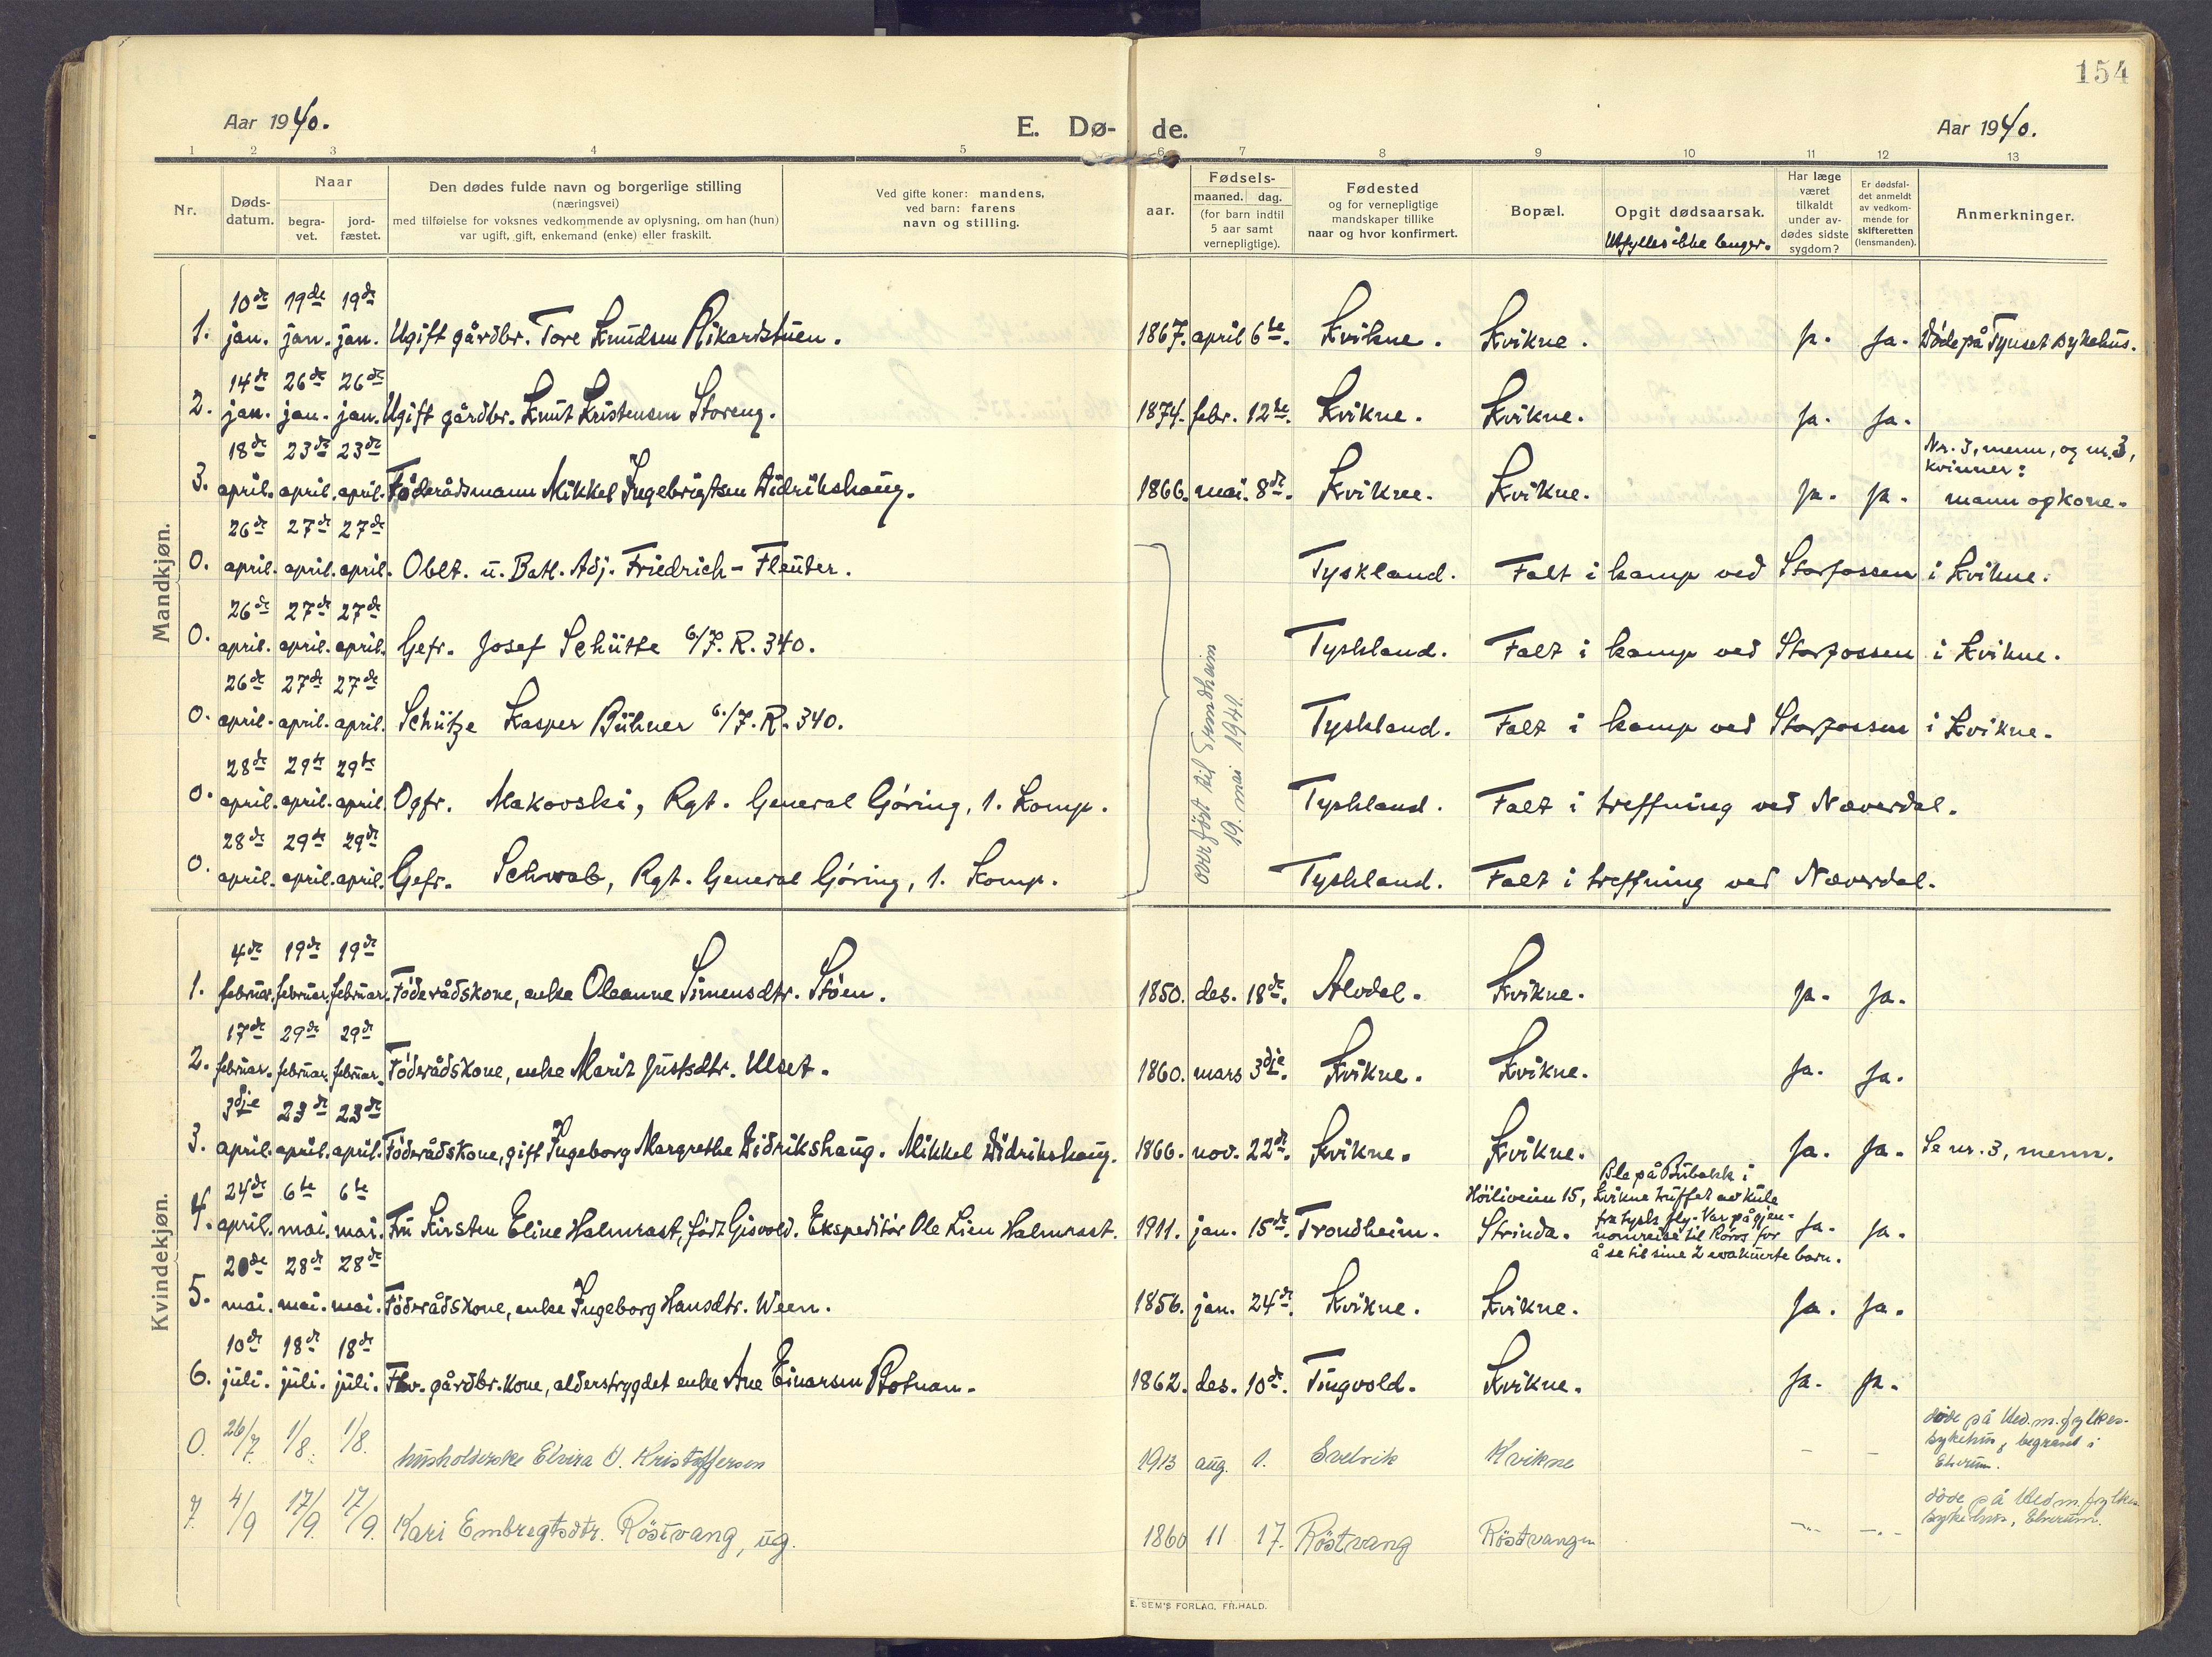 154
Aar 1940. E. Dø- de. Aar 1940.
1 2 3 4 5 6 7 8 9 10 11 12 13
Nr. Døds-datum. Naar begra-vet. jord-fæstet. Den dødes fulde navn og borgerlige stilling (næringsvei) med tilføielse for voksnes vedkommende av oplysning, om han (hun) var ugift, gift, enkemand (enke) eller fraskilt. Ved gifte koner: mandens, ved barn: farens navn og stilling. aar. Fødsels- maaned. dag. (for barn indtil 5 aar samt vernepligtige). Fødested og for vernepligtige mandskaper tillike naar og hvor konfirmert. Bopæl. Opgit dødsaarsak. Utfylles ikke lenger. Har læge været tilkaldt under av-dødes sidste sygdom? Er dødsfal-det anmeldt av vedkom-mende for skifteretten (lensmanden). Anmerkninger.
Mandkjøn.
1. 10de jan. 19de jan. 19de jan. Ugift gårdbr. Tore Knudsen Rikardstuen. 1867. april 6te. Kvikne. Kvikne. ja. Ja. Døde på Tynset sykehus.
2. 14de jan. 26de jan. 26de jan. Ugift gårdbr. Knut Kristensen Storeng. 1874. febr. 12te. Kvikne. Kvikne. Ja. Ja.
3. 18de april. 23de april. 23de april. Føderådsmann Mikkel Ingebrigtsen Didrikshaug. 1866. mai. 8de. Kvikne. Kvikne. Ja. Ja. Nr. 3, menn, og nr. 3, kvinner: mann og kone.
0. 26de april. 27de april. 27de april. Oblt. u. Batl. Adj. Friedrich - Fleuter. Tyskland. Falt i kamp ved Storfossen i Kvikne.
0. 26de april. 27de april. 27de april. Gefr. Josef Schütte 6/J. R. 340. Tyskland. Falt i kamp ved Storfossen i Kvikne.
0. 26de april. 27de april. 27de april. Schütze Kasper Bühner 6./J. R. 340. Tyskland. Falt i kamp ved Storfossen i Kvikne.
0. 28de april. 29de april. 29de april. Ogfr. Makovski, Rgt. General Göring, 1. Komp. Tyskland. Falt i treffning ved Næverdal.
0. 28de april. 29de april. 29de april. Gefr. Schwab, Rgt. General Göring, 1. Komp. Tyskland. Falt i treffning ved Næverdal.
overført til Trondheim
19. mai 1941.
Kvindekjøn.
1. 4de februar. 19de februar. 19de februar. Føderådskone, enke Oleanne Simensdtr. Støen. 1850. des. 18de. Alvdal. Kvikne. Ja. Ja.
2. 17de februar. 29de februar. 29de februar. Føderådskone, enke Marit Justsdtr. Ulset. 1860. mars 3dje. Kvikne. Kvikne. Ja. Ja.
3. 3dje april. 23de april. 23de april. Føderådskone, gift Ingeborg Margrethe Didrikshaug. Mikkel Didrikshaug. 1866. nov. 22de. Kvikne. Kvikne. Ja. Ja. Se nr. 3, menn.
4. 24de april. 6te mai. 6te mai. Fru Kirsten Eline Halmrast, født Gisvold. Ekspeditør Ole Lien Halmrast. 1911. jan. 15de. Trondheim. Høiliveien 15, Strinda. Ble på Bubakk i Kvikne truffet av kule fra tysk fly. Var på gjen-nomreise til Röros for å se til sine 2 evakuerte barn. Ja. Ja.
5. 20de mai. 28de mai. 28de mai. Føderådskone, enke Ingeborg Hansdtr. Ween. 1856. jan. 24de. Kvikne. Kvikne. Ja. Ja.
6. 10de juli. 18de juli. 18de juli. Fhv. gårdbr. kone, alderstrygdet enke Ane Einarsen Plotnam. 1862. des. 10de. Tingvold. Kvikne. Ja. Ja.
0. 26/7 1/8. 1/8. husholderske Elvira O. Kristoffersen 1913 aug. 1. Svelvik Kvikne – – döde på Hed.m.fylkes-sykehus, begravet i Elverum.
7. 4/9 17/9. 17/9. Kari Embregtsdtr. Röstvang, ug. 1860 11 17. Röstvang Röstvangen –"– –"– döde på Hedm. fylkes-sykehus, Elverum.
E. SEM'S FORLAG, FR.HALD.